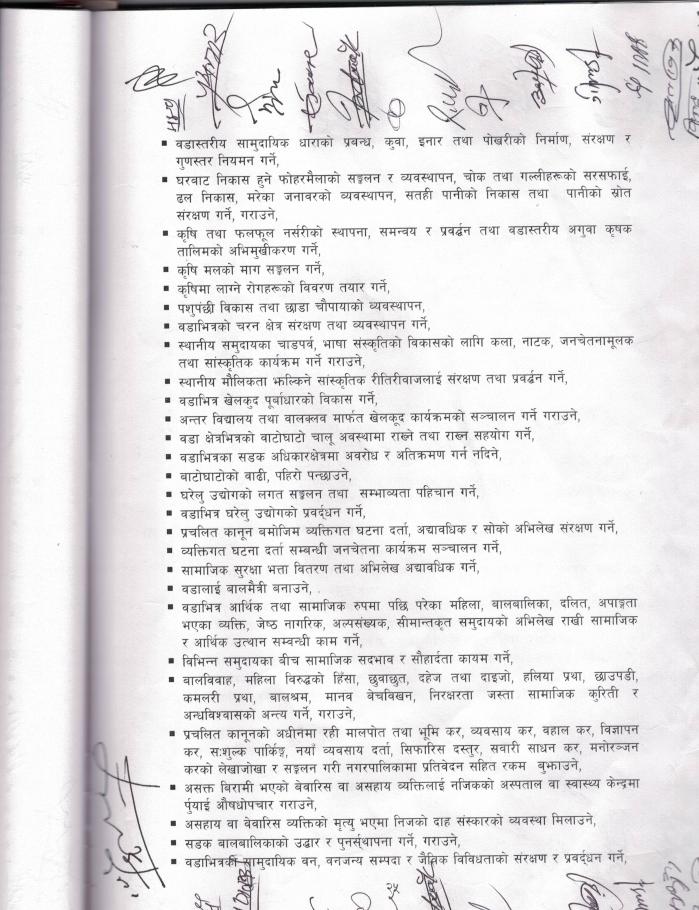 ▪ वडास्तरीय सामुदायिक धाराको प्रबन्ध, कुवा, इनार तथा पोखरीको निर्माण, संरक्षण र
गुणस्तर नियमन गर्ने,
▪ घरबाट निकास हुने फोहरमैलाको सङ्कलन र व्यवस्थापन, चोक तथा गल्लीहरूको सरसफाई,
ढल निकास, मरेका जनावरको व्यवस्थापन, सतही पानीको निकास तथा पानीको स्रोत
संरक्षण गर्ने, गराउने,
▪ कृषि तथा फलफूल नर्सरीको स्थापना, समन्वय र प्रवर्द्धन तथा वडास्तरीय अगुवा कृषक
तालिमको अभिमुखीकरण गर्ने,
▪ कृषि मलको माग सङ्कलन गर्ने,
▪ कृषिमा लाग्ने रोगहरूको विवरण तयार गर्ने,
▪ पशुपंछी विकास तथा छाडा चौपायाको व्यवस्थापन,
▪ वडाभित्रको चरन क्षेत्र संरक्षण तथा व्यवस्थापन गर्ने,
▪ स्थानीय समुदायका चाडपर्व, भाषा संस्कृतिको विकासको लागि कला, नाटक, जनचेतनामूलक
तथा सांस्कृतिक कार्यक्रम गर्ने गराउने,
▪ स्थानीय मौलिकता झल्किने सांस्कृतिक रीतिरीवाजलाई संरक्षण तथा प्रवर्द्धन गर्ने,
▪ वडाभित्र खेलकुद पूर्बाधारको विकास गर्ने,
▪ अन्तर विद्यालय तथा वालक्लव मार्फत खेलकूद कार्यक्रमको सञ्चालन गर्ने गराउने,
▪ वडा क्षेत्रभित्रको वाटोघाटो चालू अवस्थामा राख्ने तथा राख्न सहयोग गर्ने,
▪ वडाभित्रका सडक अधिकारक्षेत्रमा अवरोध र अतिक्रमण गर्न नदिने,
▪ बाटोघाटोको बाढी, पहिरो पन्छाउने,
▪ घरेलु उद्योगको लगत सङ्कलन तथा सम्भाव्यता पहिचान गर्ने,
▪ वडाभित्र घरेलु उद्योगको प्रवर्द्धन गर्ने,
▪ प्रचलित कानून बमोजिम व्यक्तिगत घटना दर्ता, अद्यावधिक र सोको अभिलेख संरक्षण गर्ने,
▪ व्यक्तिगत घटना दर्ता सम्बन्धी जनचेतना कार्यक्रम सञ्चालन गर्ने,
▪ सामाजिक सुरक्षा भत्ता वितरण तथा अभिलेख अद्यावधिक गर्ने,
▪ वडालाई बालमैत्री बनाउने, .
▪ वडाभित्र आर्थिक तथा सामाजिक रुपमा पछि परेका महिला, बालबालिका, दलित, अपाङ्गता
भएका व्यक्ति, जेष्ठ नागरिक, अल्पसंख्यक, सीमान्तकृत समुदायको अभिलेख राखी सामाजिक
र आर्थिक उत्थान सम्वन्धी काम गर्ने,
▪ विभिन्न समुदायका बीच सामाजिक सदभाव र सौहार्दता कायम गर्ने,
▪ बालविवाह, महिला विरुद्धको हिंसा, छुवाछुत, दहेज तथा दाइजो, हलिया प्रथा, छाउपडी,
कमलरी प्रथा, बालश्रम, मानव बेचविखन, निरक्षरता जस्ता सामाजिक कुरिती र
अन्धविश्वासको अन्त्य गर्ने, गराउने,
▪ प्रचलित कानूनको अधीनमा रही मालपोत तथा भूमि कर, व्यवसाय कर, वहाल कर, विज्ञापन
कर, सःशुल्क पार्किङ्ग, नयाँ व्यवसाय दर्ता, सिफारिस दस्तुर, सवारी साधन कर, मनोरञ्जन
करको लेखाजोखा र सङ्कलन गरी नगरपालिकामा प्रतिवेदन सहित रकम बुझाउने,
▪ असक्त विरामी भएको बेवारिस वा असहाय व्यक्तिलाई नजिकको अस्पताल वा स्वास्थ्य केन्द्रमा
र्पुयाई औषधोपचार गराउने,
▪ असहाय वा बेवारिस व्यक्तिको मृत्यु भएमा निजको दाह संस्कारको व्यवस्था मिलाउने,
▪ सडक बालबालिकाको उद्धार र पुनर्स्थापना गर्ने, गराउने,
▪ वडाभित्रकी सामुदायिक वन, वनजन्य सम्पदा र जैविक विविधताको संरक्षण र प्रवर्द्धन गर्ने,
२५